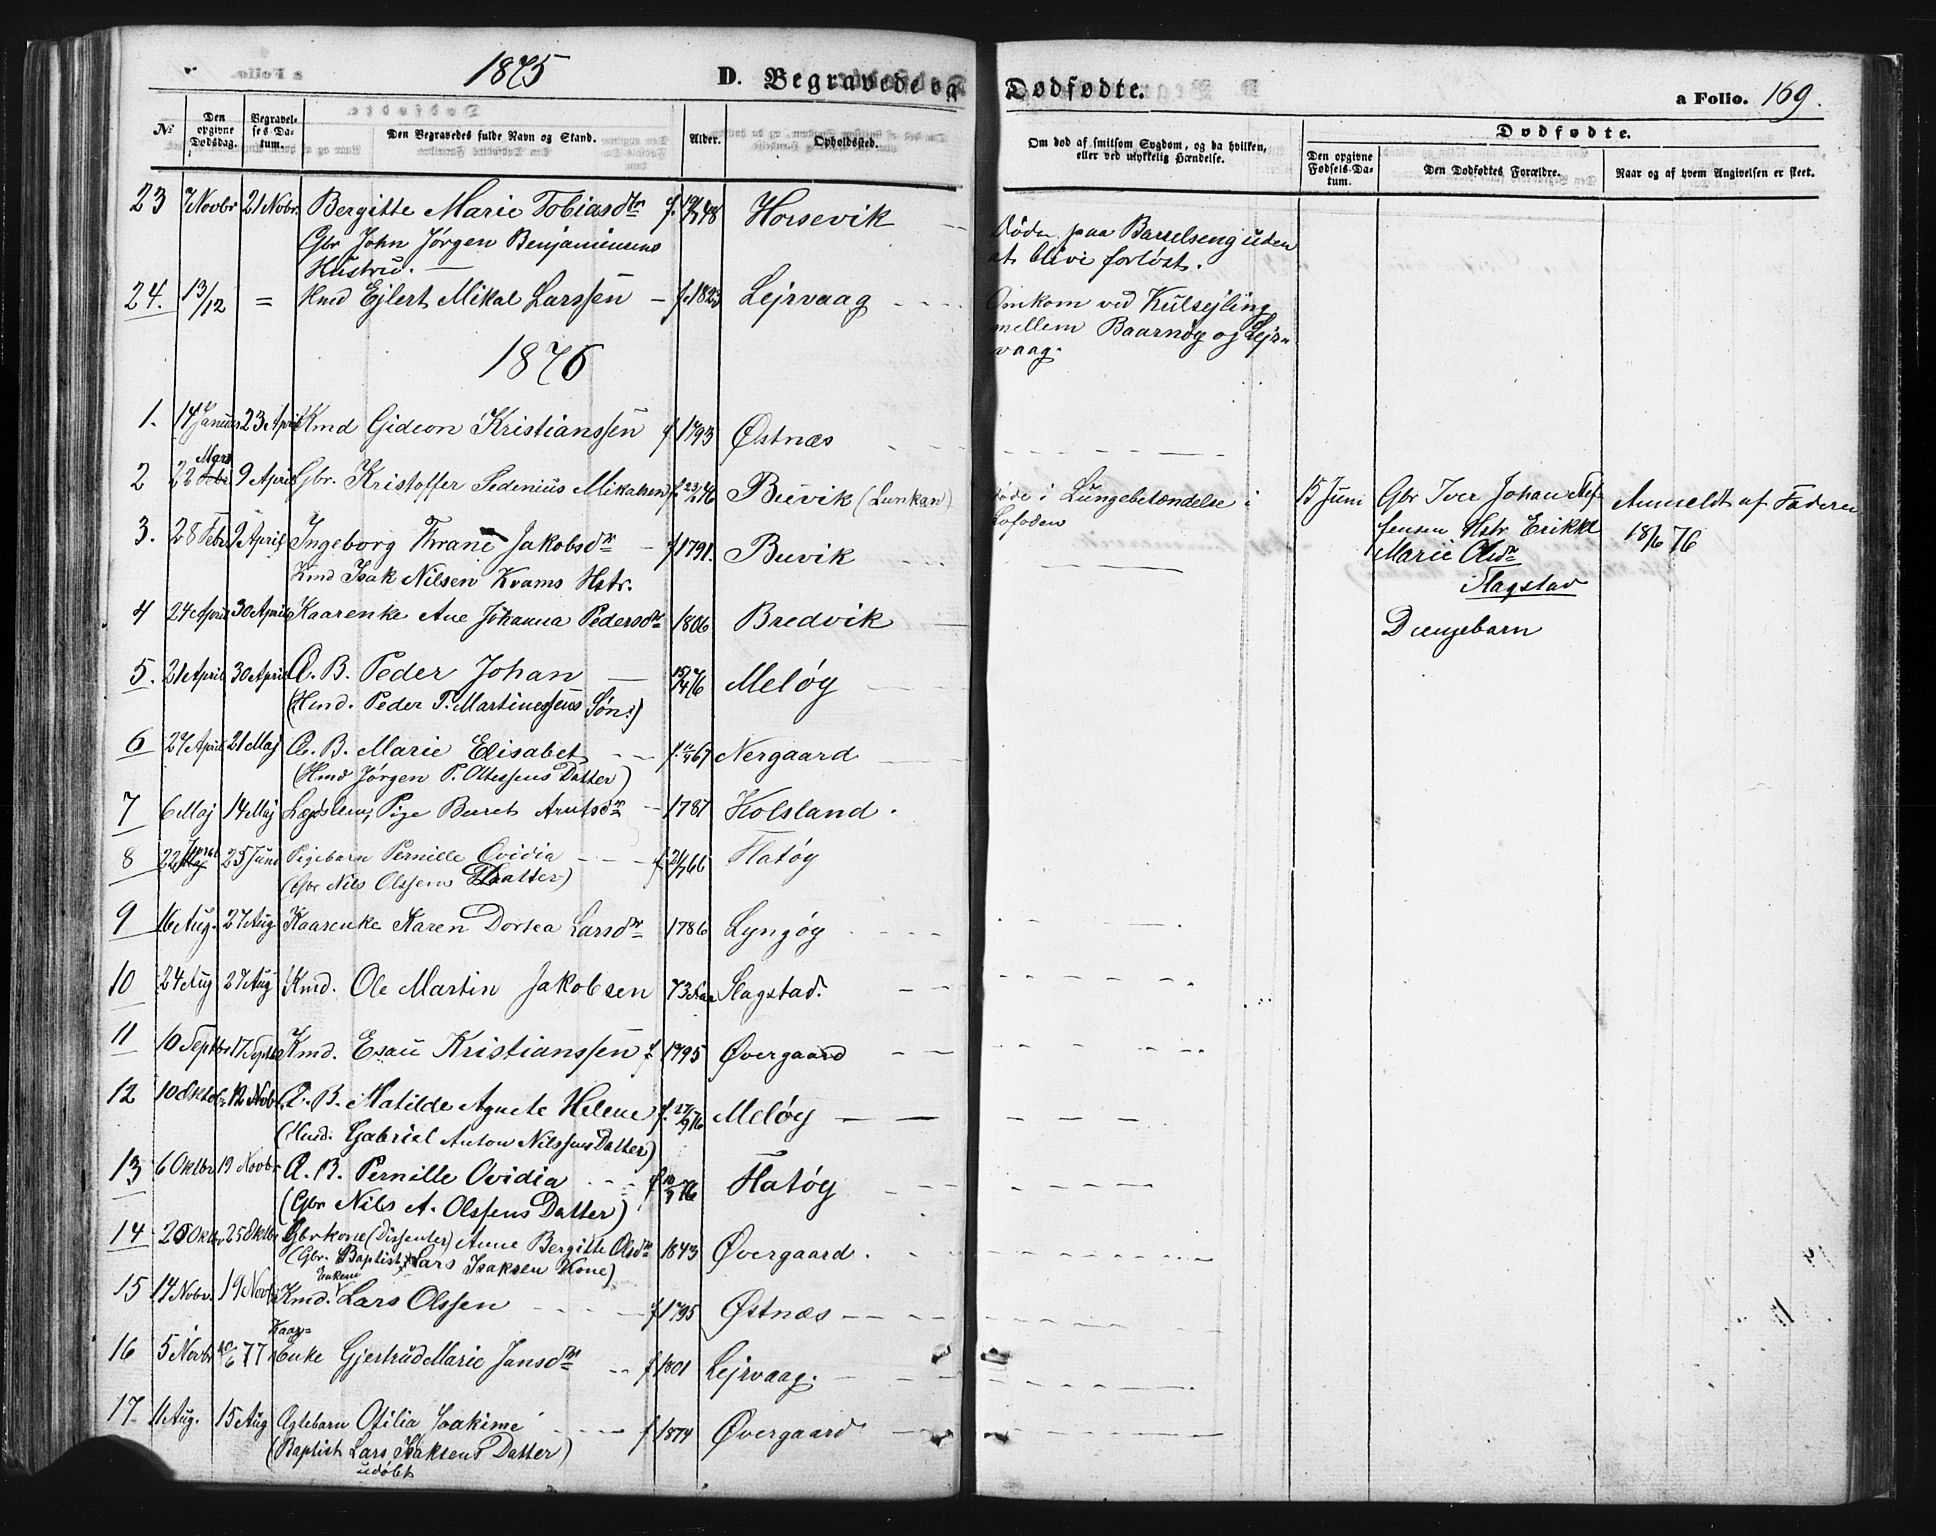 1875
D. Begravede og Dødfødte.
a Folio. 169.
№
Den opgivne Dødsdag.
Begravelses Datum.
Den Begravedes fulde Navn og Stand.
Alder.
Opholdssted.
Om død af smitsom Sygdom, og da hvilken, eller ved ulykkelig Hændelse.
Dødfødte.
Den opgivne Fødsels-Datum.
Den Dødfødtes Forældre.
Naar og af hvem Angivelsen er skeet.
23 7 Novbr 21 Nobr. Bergitte Marie Tobiasdtr f. 48 Horsevik
Gbr John Jørgen Benjaminsens
Hustru. —
Døde paa Barselseng uden
at blive forløst.
24. 13/12 = Kmd Ejlert Mikal Larssen — f. 1823 Lejrvaag
Omkom ved Kulsejling
mellem Baarnøg og Lejr=
vaag.
1876
1. 14 Januar 23 April Kmd Gideon Kristianssen f 1793 Østnæs
2 22 Mars 9 April Gbr. Kristoffer Sedenius Mikalsen f. 46 Buvik (Lunkan)
Døde i Lungebetændelse i
Lofoden
15 Juni Gbr Iver Johan Stef-
fensen Hstr Erikke
Marie Olsdr
Slagstad
Drengebarn
Anmeldt af Faderen
18/6 76
3. 28 Febr 9 April Ingeborg Thrane Jakobsdr — f 1791. Buvik
Kmd Isak Nilsen Kvams Hstr.
4 24 April 30 April Kaarenke Ane Johanna Pedersdr 1806 Bredvik
5. 21 April 30 April Æ. B. Peder Johan — 15/4 76 Meløy
(Hmd. Peder P. Martinessens Søn.)
6 27 April 21 Maj Æ. B. Marie Elisabet f. 67 Nergaard
(Hmd Jørgen P. Ottessens Datter)
7 6 Maj 14 Maj Lægdslem, Pige Beret Arntsdr — 1787 Kolsland.
8 22 25 Juni Pigebarn Pernille Ovidia f. 21/7 66 Flatøy
(Gbr Nils Olssens Datter)
9 16 Aug. 27 Aug Kaarenke Karen Dortea Larsdr 1786 Lyngøy
10 24 Aug 27 Aug Kmd. Ole Martin Jakobsen 73 Aar Slagstad.
11 10 Septbr 17 Septbr Kmd. Esau Kristianssen f. 1795 Øvergaard
12 10 Oktob. 12 Nobr. Æ. B. Matilde Agnete Helene f. 27/9 76 Meløy
(Hmd. Gabriel Anton Nilssens Datter)
13 6 Oktbr 19 Novbr Æ. B. Pernille Ovidia f 76 Flatøy
(Gbr Nils A. Olssens Datter)
14 20 Oktbr 25 Oktbr Gbrkone (Dissenter) Anne Bergitte Olsdr 1843 Øvergaard.
(Gbr. Baptist Lars Isaksen Kone)
15 14 Nobr. 19 Novbr Kmd. Enkem Lars Olssen f 1795 Østnæs
16 5 Novbr 10/6 77 Kaar=
enke Gjertrud Marie Jansdtr f 1801 Lejrvaag.
17 11 Aug. 15 Aug Ægtebarn Otilia Joakime f 1874 Øvergaard
(Baptist Lars Isaksens Datter)
udøbt